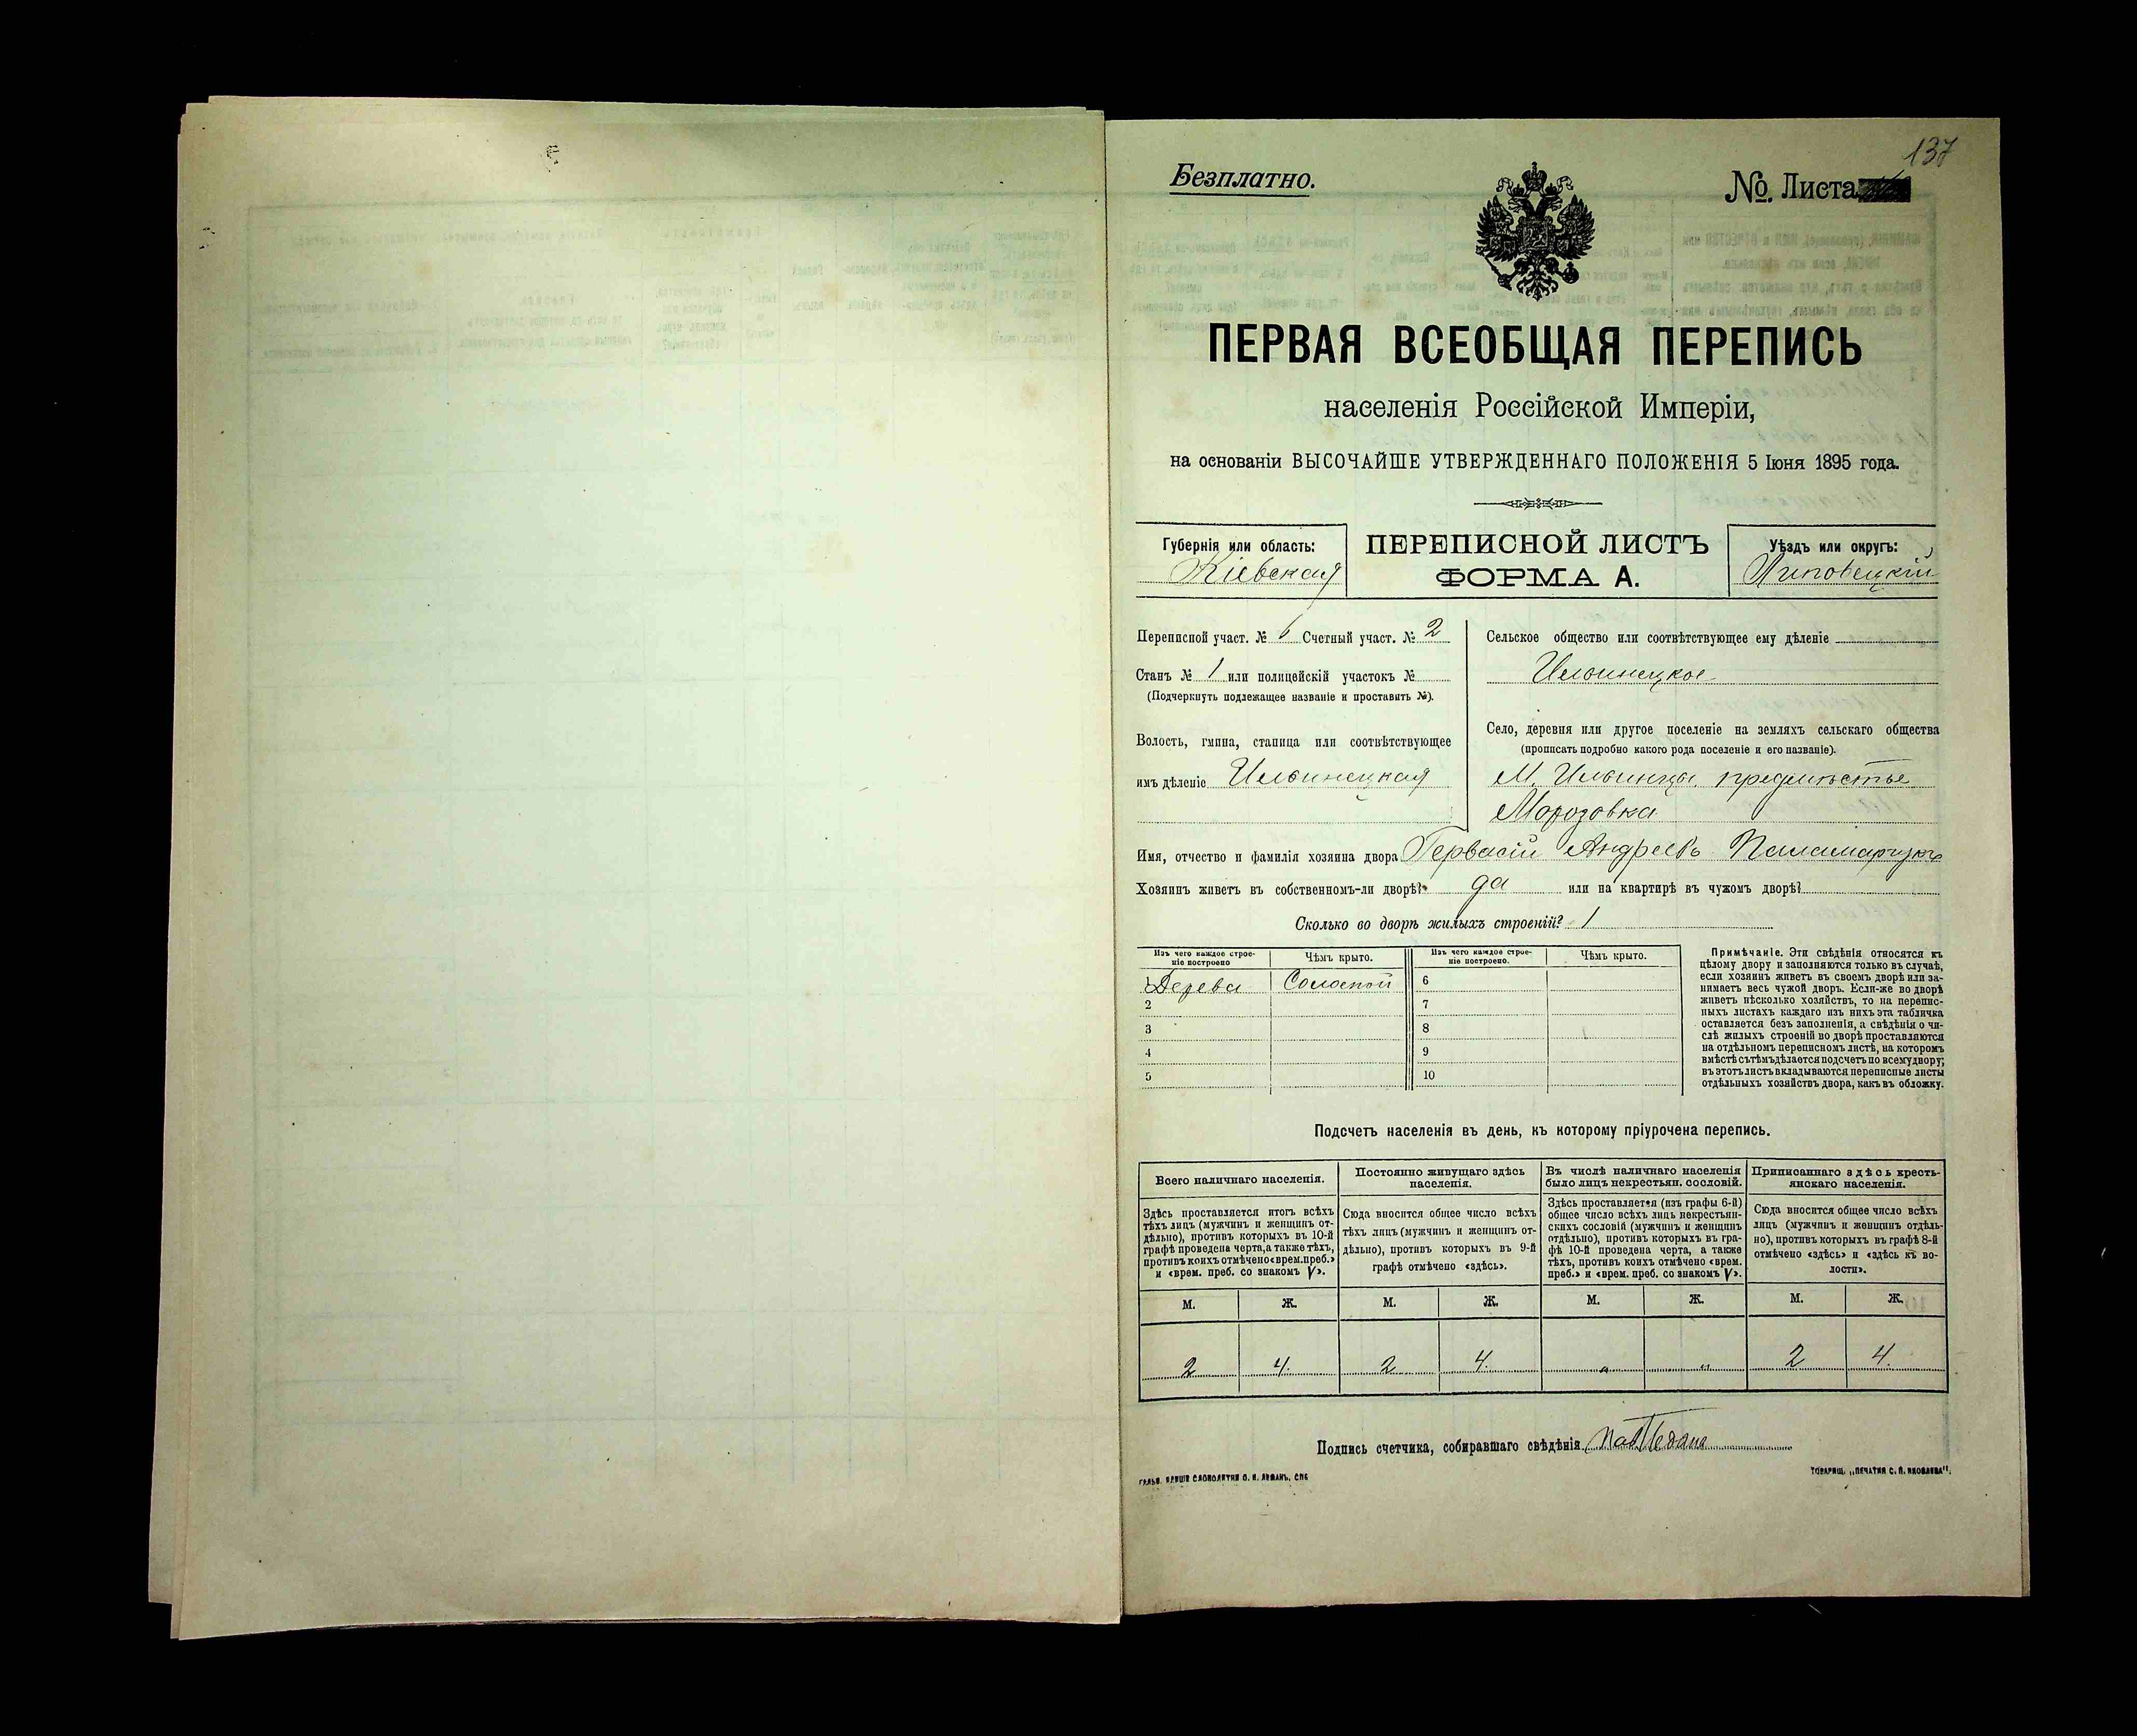 137
Безплатно.
№ Листа
ПЕРВАЯ ВСЕОБЩАЯ ПЕРЕПИСЬ
населенія Россійской Имперіи,
на основаніи ВЫСОЧАЙШЕ УТВЕРЖДЕННАГО ПОЛОЖЕНІЯ 5 Іюня 1895 года.
Губернія или область:
Кіевская
ПЕРЕПИСНОЙ ЛИСТЪ
ФОРМА А.
Уѣздъ или округъ:
Липовецкій
Переписной участ. № 6 Счетный участ. № 2
Станъ № 1 или полицейскій участокъ №
(Подчеркнуть подлежащее названіе и проставить №).
Волость, гмина, станица или соотвѣтствующее
имъ дѣленіе Ильинецкая
Сельское общество или соотвѣтствующее ему дѣленіе
Ильинецкое
Село, деревня или другое поселеніе на земляхъ сельскаго общества
(прописать подробно какого рода поселеніе и его названіе).
М. Ильинцы предмѣстье
Морозовка
Имя, отчество и фамилія хозяина двора Гервасій Андреевъ Паламарчукъ
Хозяинъ живетъ въ собственномъ-ли дворѣ? да или на квартирѣ въ чужомъ дворѣ?
Сколько во дворѣ жилыхъ строеній? 1
Изъ чего каждое строе-
ніе построено
Чѣмъ крыто.
Изъ чего каждое строе-
ніе построено.
Чѣмъ крыто.
1 Дерева Соломой 6
2 7
3 8
4 9
5 10
Примѣчаніе. Эти свѣдѣнія относятся къ
цѣлому двору и заполняются только въ случаѣ,
если хозяинъ живетъ въ своемъ дворѣ или за-
нимаетъ весь чужой дворъ. Если-же во дворѣ
живетъ нѣсколько хозяйствъ, то на перепис-
ныхъ листахъ каждаго изъ нихъ эта табличка
оставляется безъ заполненія, а свѣдѣнія о чи-
слѣ жилыхъ строеній во дворѣ проставляются
на отдѣльномъ переписномъ листѣ, на которомъ
вмѣстѣ съ тѣмъ дѣлается подсчетъ по всему двору;
въ этотъ листъ вкладываются переписные листы
отдѣльныхъ хозяйствъ двора, какъ въ обложку.
Подсчетъ населенія въ день, къ которому пріурочена перепись.
Всего наличнаго населенія.
Здѣсь проставляется итогъ всѣхъ
тѣхъ лицъ (мужчинъ и женщинъ от-
дѣльно), противъ которыхъ въ 10-й
графѣ проведена черта, а также тѣхъ,
противъ коихъ отмѣчено «врем. преб.»
и «врем. преб. со знакомъ V».
Постоянно живущаго здѣсь
населенія.
Сюда вносится общее число всѣхъ
тѣхъ лицъ (мужчинъ и женщинъ от-
дѣльно), противъ которыхъ въ 9-й
графѣ отмѣчено «здѣсь».
Въ числѣ наличнаго населенія
было лицъ некрестьян. сословій.
Здѣсь проставляется (изъ графы 6-й)
общее число всѣхъ лицъ некрестьян-
скихъ сословій (мужчинъ и женщинъ
отдѣльно), противъ которыхъ въ гра-
фѣ 10-й проведена черта, а также
тѣхъ, противъ коихъ отмѣчено «врем.
преб.» и «врем. преб. со знакомъ V».
Приписаннаго здѣсь кресть-
янскаго населенія.
Сюда вносится общее число всѣхъ
лицъ (мужчинъ и женщинъ отдѣль-
но), противъ которыхъ въ графѣ 8-й
отмѣчено «здѣсь» и «здѣсь къ во-
лости».
М. Ж. М. Ж. М. Ж. М. Ж.
2 4. 2 4. „ „ 2 4.
Подпись счетчика, собиравшаго свѣдѣнія
ТОВАРИЩ. „ПЕЧАТНЯ С. П. ЯКОВЛЕВА".